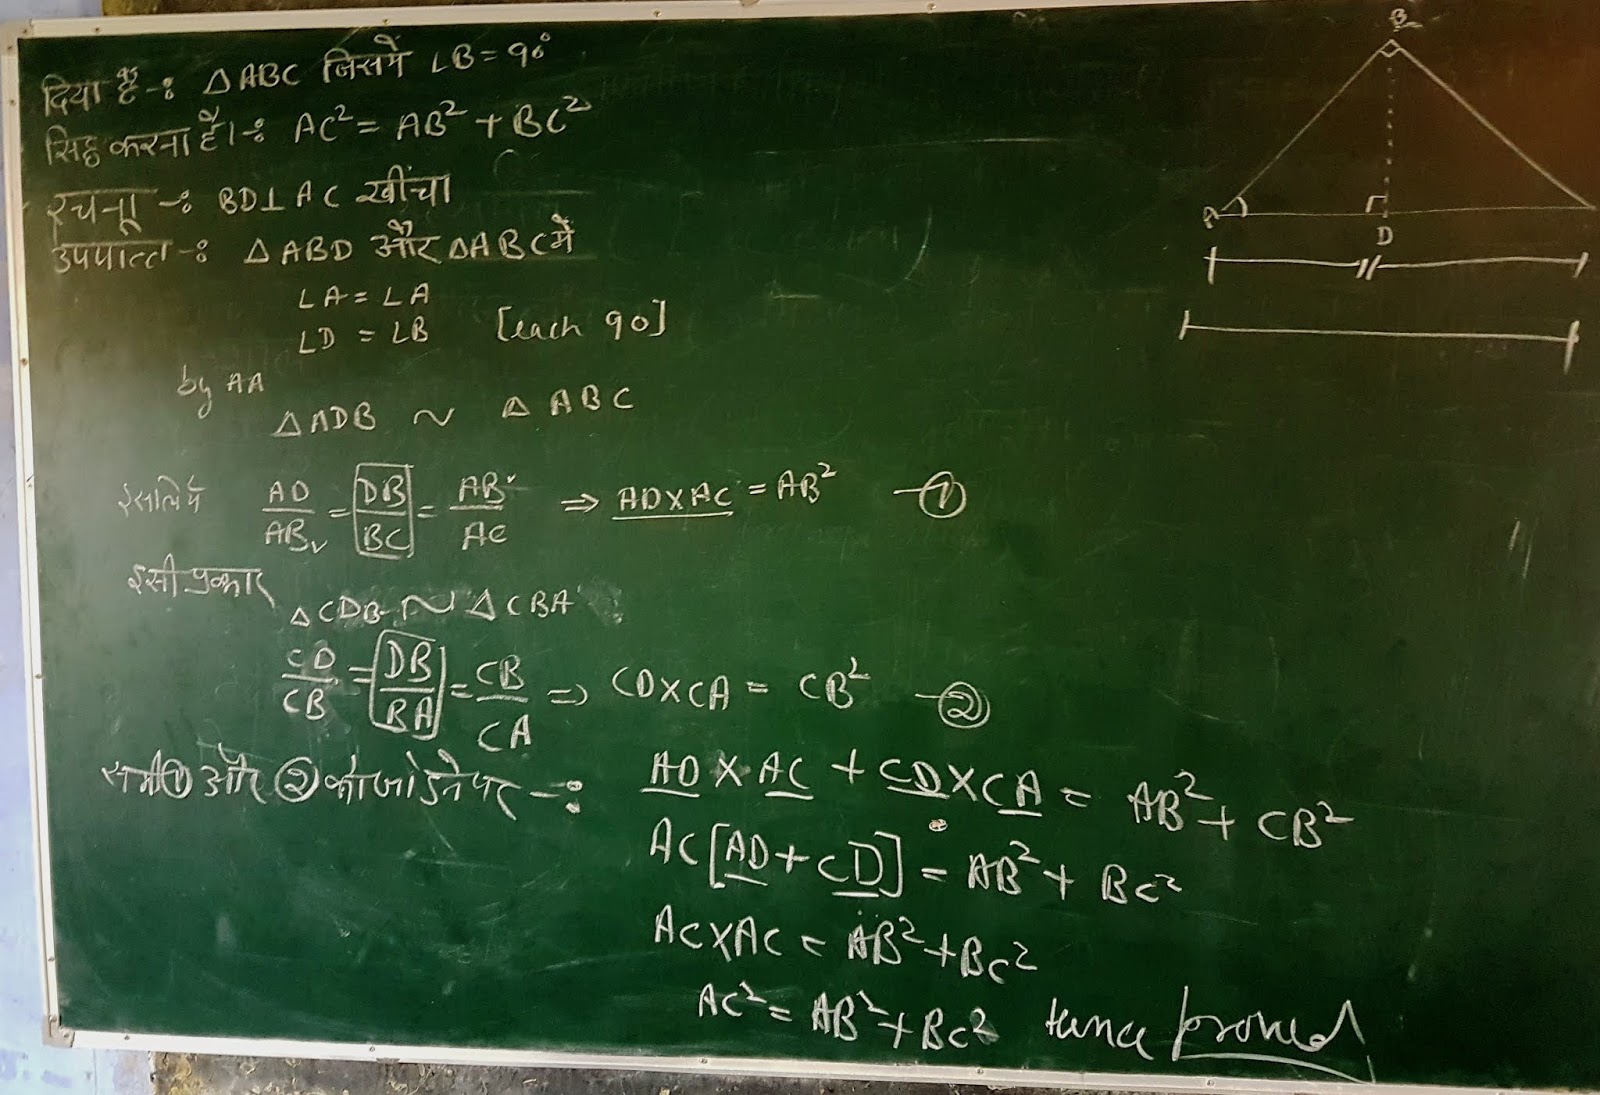 दिया है -: △ABC जिसमें ∠B = 90°
सिद्ध करना है। -: AC² = AB² + BC²
रचना -: BD⊥AC खींचा
उपपात्त -: △ABD और △ABC में
∠A = ∠A
∠D = ∠B [each 90]
by AA
△ADB ~ △ABC
इसलिये AD/AB = DB/BC = AB/AC ⇒ AD×AC = AB² —①
इसी प्रकार
△CDB ~ △CBA
CD/CB = DB/BA = CB/CA ⇒ CD×CA = CB² —②
समी① और ② को जोड़ने पर -: AD × AC + CD×CA = AB² + CB²
AC[AD+CD] = AB² + BC²
AC×AC = AB² + BC²
AC² = AB² + BC² Hence proved
B
A
D